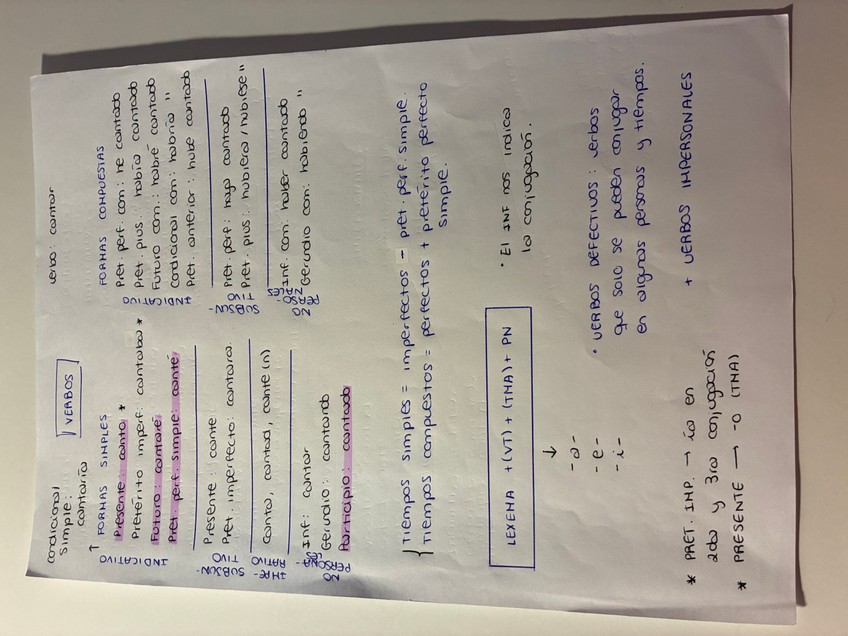 condicional
simple:
cantaría
VERBOS
verbo: cantar
↑ FORMAS SIMPLES
INDICATIVO
Presente: canto *
Pretérito imperf: cantaba *
Futuro: cantaré
Pret. perf. simple: canté
SUBJUN-
TIVO
Presente: cante
Pret. imperfecto: cantara
IMPE-
RATIVO
Canta, cantad, cante(n)
NO
PERSONA-
LES
Inf: cantar
Gerundio: cantando
Participio: cantado
FORMAS COMPUESTAS
INDICATIVO
Pret. perf. com: he cantado
Pret. plus.: había cantado
Futuro com.: habré cantado
Condicional com: habría "
Pret. anterior: hube cantado
SUBJUN-
TIVO
Pret. perf: haya cantado
Pret. plus: hubiera / hubiese "
NO
PERSO-
NALES
Inf. com: haber cantado
Gerundio com: habiendo "
{ Tiempos simples = imperfectos - pret. perf. simple.
Tiempos compuestos = perfectos + pretérito perfecto
simple.
LEXEMA + (VT) + (TMA) + PN
↓
-a-
-e-
-i-
• El INF nos indica
la conjugación.
• VERBOS DEFECTIVOS: verbos
que solo se pueden conjugar
en algunas personas y tiempos.
+ VERBOS IMPERSONALES
* PRET. IMP. → ía en
2da y 3ra conjugación
* PRESENTE → -o (TMA)